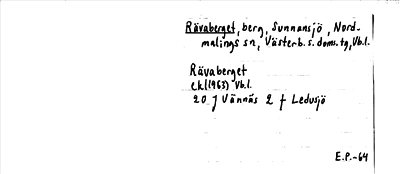 Rävaberget, berg, Sunnansjö, Nord-
malings sn, Västerb. s. doms. tg, Vb.l.
Rävaberget
e.k. (1963) Vb.l.
20 J Vännäs 2 f Ledusjö
E.P.-64